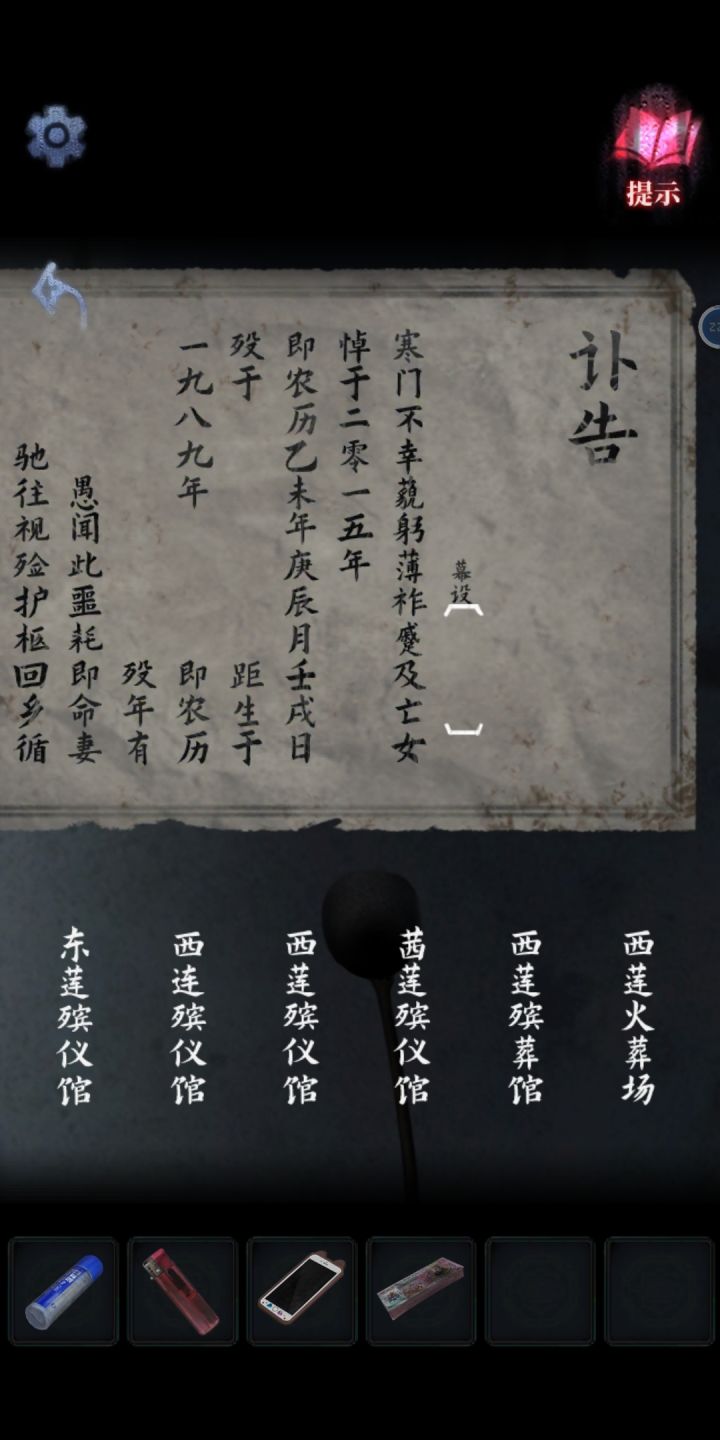 提示
讣告
幕设
寒门不幸藐躬薄祚蹙及亡女
悼于二零一五年
即农历乙未年庚辰月壬戌日
殁于
距生于
一九八九年
即农历
殁年有
愚闻此噩耗即命妻
驰往视殓护柩回乡循
西莲火葬场
西莲殡葬馆
茜莲殡仪馆
西莲殡仪馆
西连殡仪馆
东莲殡仪馆